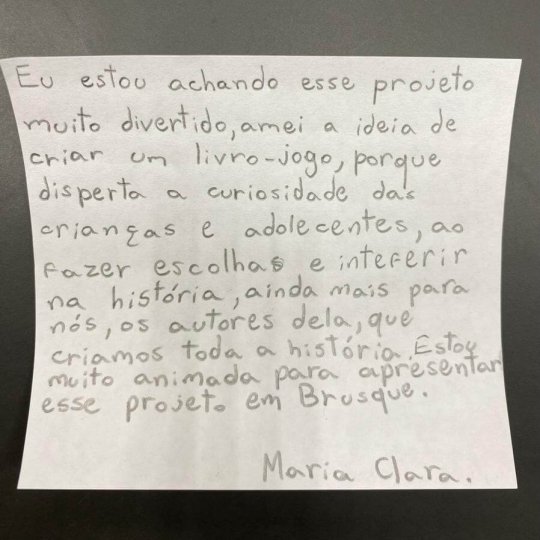 Eu estou achando esse projeto
muito divertido, amei a ideia de
criar um livro-jogo, porque
disperta a curiosidade das
crianças e adolecentes, ao
fazer escolhas e inteferir
na história, ainda mais para
nós, os autores dela, que
criamos toda a história. Estou
muito animada para apresentar
esse projeto em Brusque.
Maria Clara.